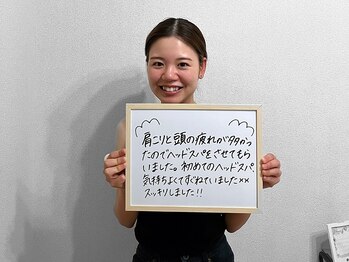 肩こりと頭の疲れがタタかっ
たのでヘッドスパをさせてもら
いました。初めてのヘッドスパ、
気持ちよくてすぐねていました××
スッキリしました!!